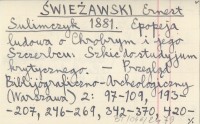 ŚWIEŻAWSKI Ernest
Sulimczyk 1881. Epopeja
ludowa o Chrobrym i jego
Szczerbcu. Szkic do studyjum
krytycznego. — Przegląd
Bibljograficzno-Archeologiczny
(Warszawa) 2: 97-109, 193-
-207, 246-269, 342-370, 420-